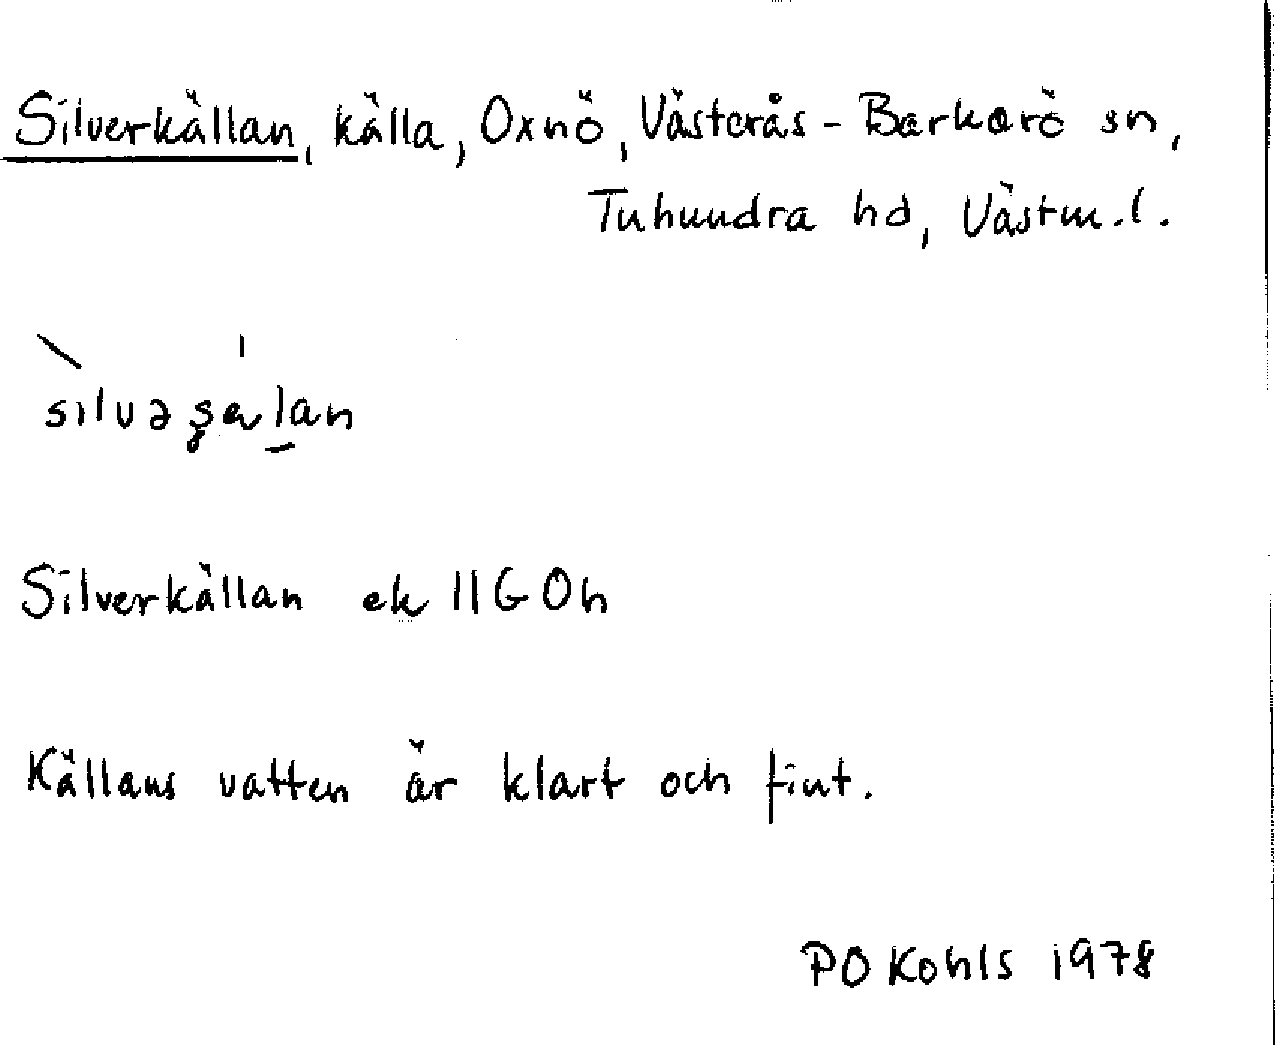 Silverkällan, källa, Oxnö, Västerås-Barkarö sn,
Tuhundra hd, Västm.l.
Silverkällan ek 11G0h
Källans vatten är klart och fint.
PO Kohls 1978